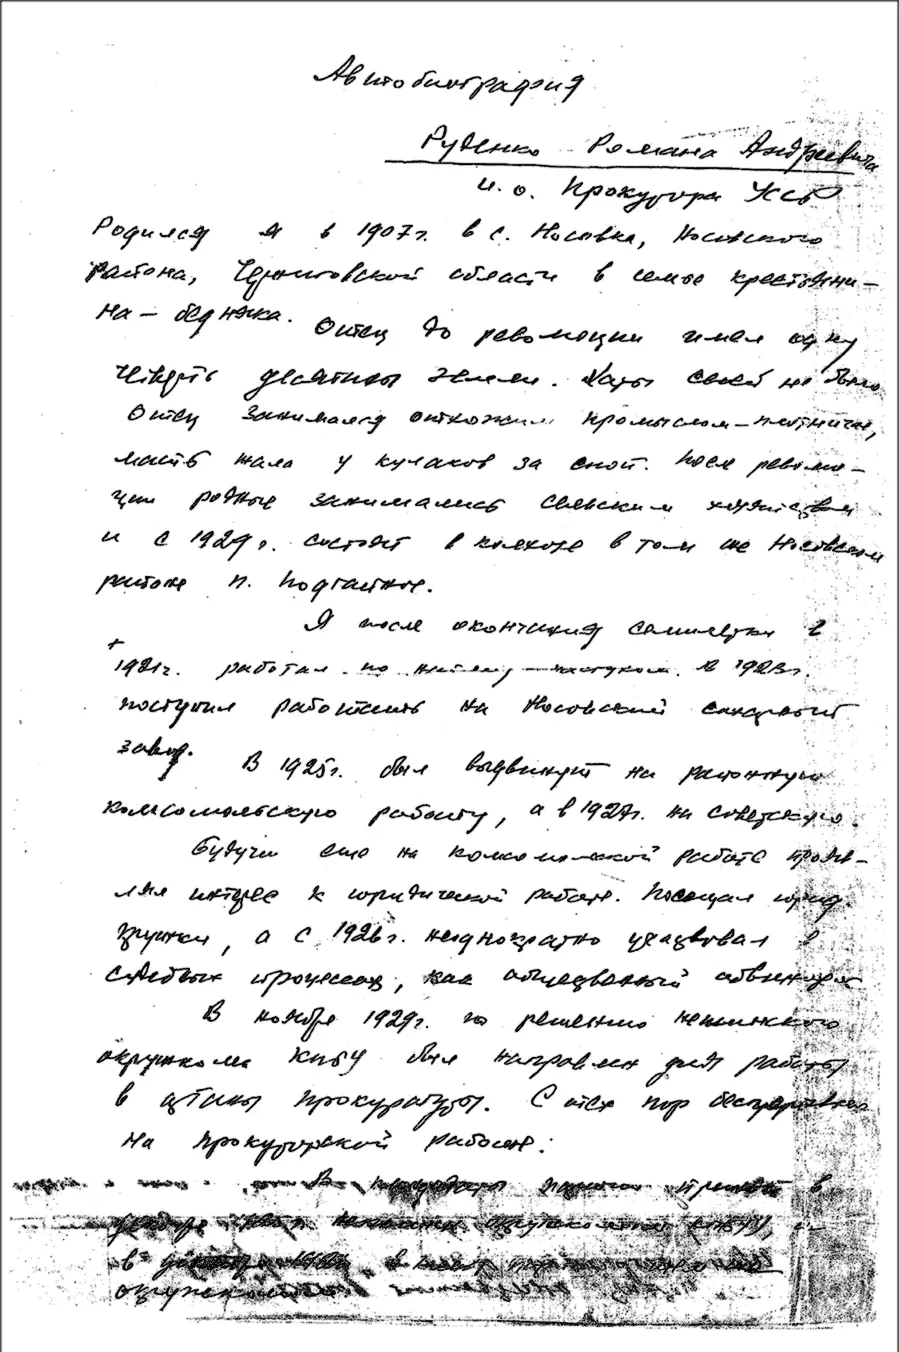 Автобиография
Руденко Романа Андреевича
и. о. Прокурора УССР
Родился я в 1907г. в с. Носовка, Носовского
района, Черниговской области в семье крестьяни-
на-бедняка. Отец до революции имел одну
четверть десятины земли. Хаты своей не было.
Отец занимался отхожим промыслом-плотничал,
мать жала у кулаков за сноп. После револю-
ции родные занимались сельским хозяйством
и с 1929г. состоят в колхозе в том же Носовском
районе п. Подгайное.
Я после окончания семилетки в
1921г. работал по найму-пастухом. В 1923г.
поступил работать на Носовский сахарный
завод. В 1925г. был выдвинут на районную
комсомольскую работу, а в 1927г. на советскую.
Будучи еще на комсомольской работе прояв-
лял интерес к юридической работе. Посещал юрид.
кружки, а с 1926г. неоднократно участвовал в
судебных процессах, как общественный обвинитель
В ноябре 1929г. по решению нежинского
окружкома КПбУ был направлен для работы
в органы прокуратуры. С этих пор беспрерывно
на прокурорской работе.
В кандидаты партии принят в
окружкомом КПбУ, а
в декабре
окружкомом